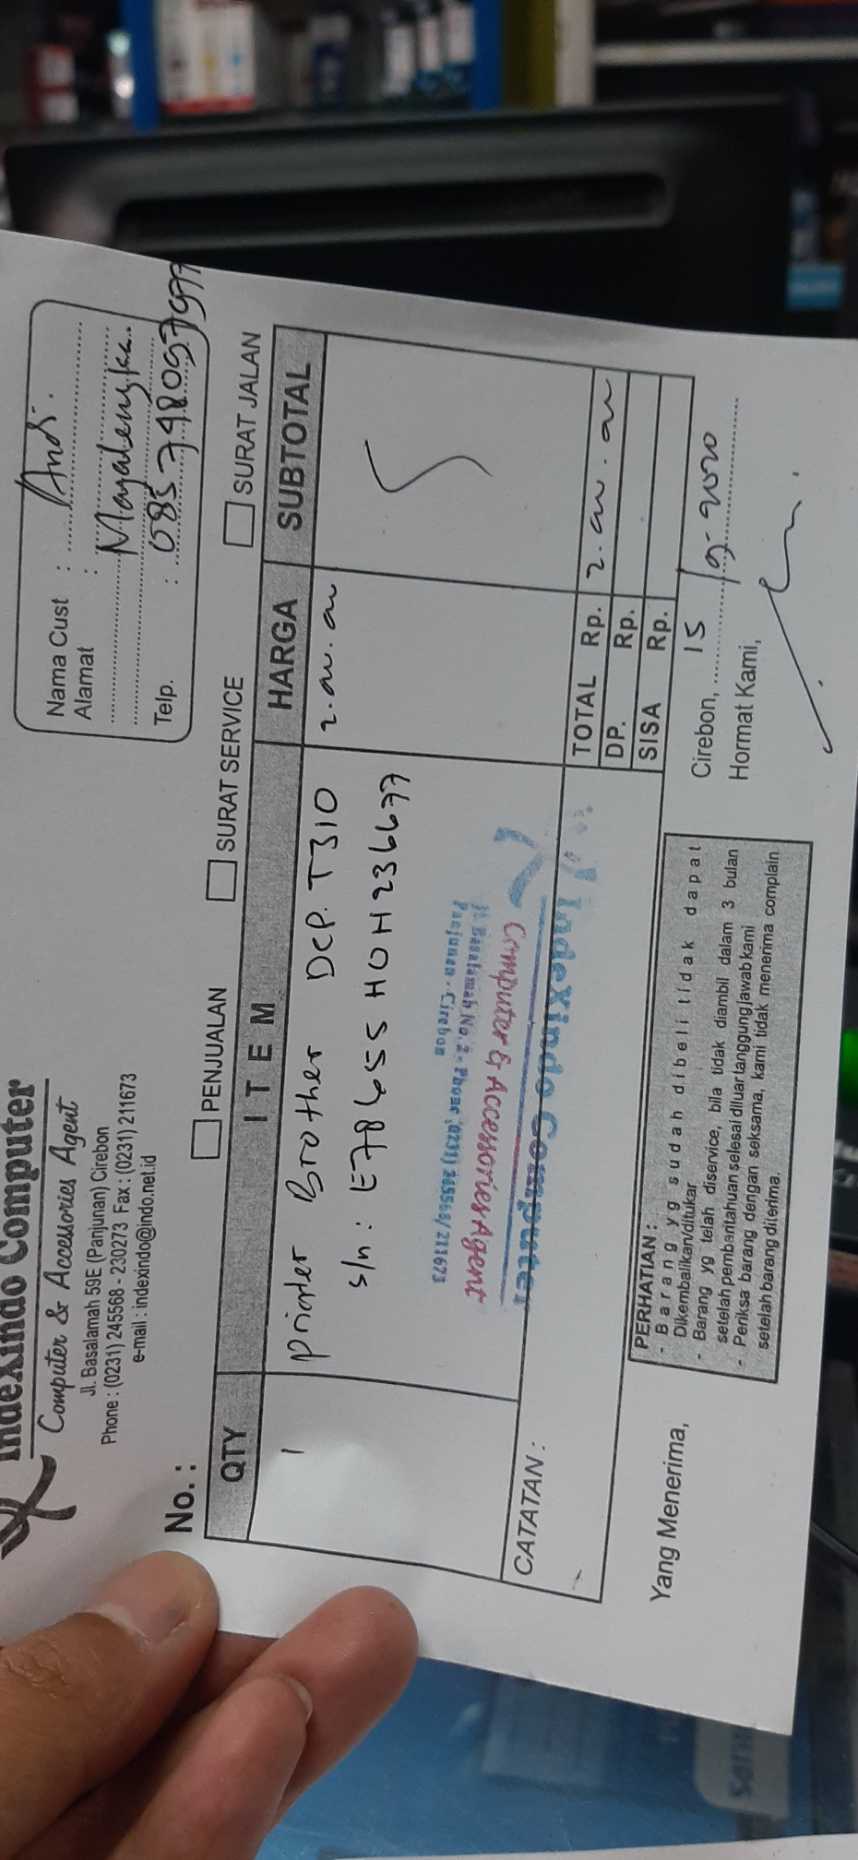 Indexindo Computer
Computer & Accessories Agent
Jl. Basalamah 59E (Panjunan) Cirebon
Phone : (0231) 245568 - 230273 Fax : (0231) 211673
e-mail : indexindo@indo.net.id
Nama Cust : Andi.
Alamat : Majalengka.
Telp. : 085
No. :
PENJUALAN
SURAT SERVICE
SURAT JALAN
QTY ITEM HARGA SUBTOTAL
1 printer Brother DCP. T310
s/n : E78655H0H236677
IndeXindo Computer
Computer & Accessories Agent
Jl. Basalamah No. 2 - Phone (0231) 245568/211673
Panjunan - Cirebon
CATATAN :
TOTAL Rp.
DP. Rp.
SISA Rp.
PERHATIAN :
- Barang yg sudah dibeli tidak dapat
Dikembalikan/ditukar
- Barang yg telah diservice, bila tidak diambil dalam 3 bulan
setelah pembaritahuan selesai diluar tanggung jawab kami
- Periksa barang dengan seksama, kami tidak menerima complain
setelah barang diterima.
Cirebon, 15 2020
Hormat Kami,
Yang Menerima,